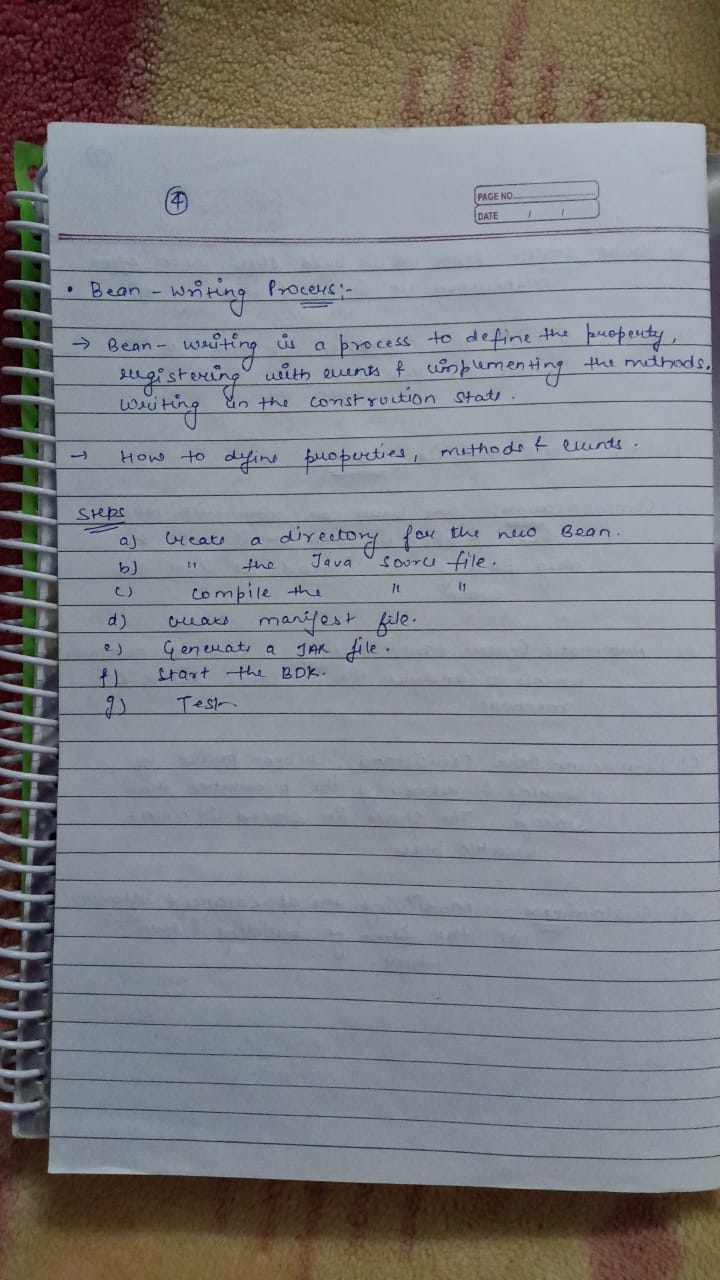 ④
PAGE NO.
DATE / /
• Bean - writing Process:-
→ Bean - writing is a process to define the property,
registering with events & implementing the methods.
writing in the construction state.
→ How to define properties, methods & events.
Steps
a) Create a directory for the new Bean.
b) " the Java source file.
c) compile the " "
d) create manifest file.
e) Generate a JAR file.
f) Start the BDK.
g) Test.